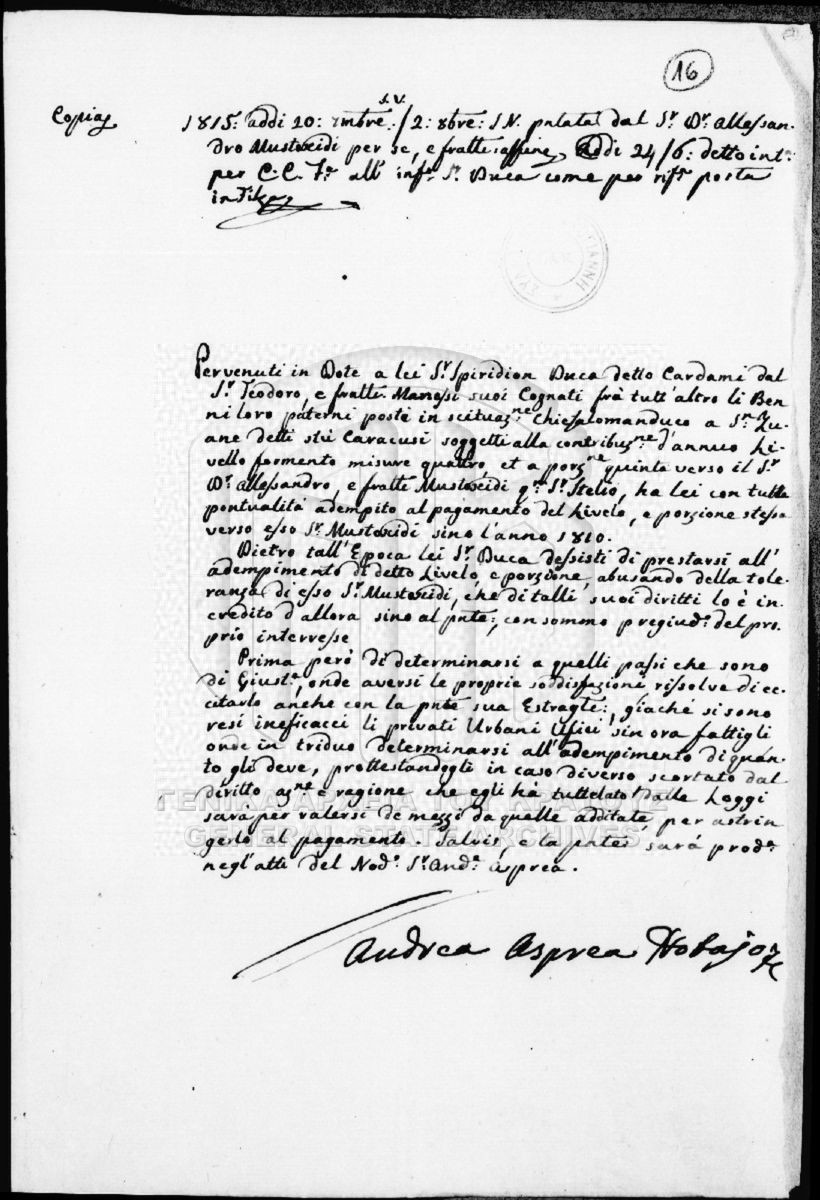 16
Copia
S.V.
1815: addi 20: 7mbre:/2: 8bre: S.N. pntata dal Sr. Dr. Allessan-
dro Mustoxidi per se, e fratti: affine, Addi 24/6: detto int:
per C.C. Fo. all' infto. Sr. Duca come per riffta. posta
in Filza
Pervenuti in Dote a lei Sr. Spiridion Duca detto Cardami dal
Sr. Teodoro, e fratti: Manessi suoi Cognati frà tutt'altro li Ben-
ni loro paterni posti in scituazne. Chiesalomanduco a Sn. Zu-
ane detti stri Caracusi soggetti alla contribuzne. d'annuo Li-
vello formento misure quattro, et a porzne. quinta verso il Sr.
Dr. Allessandro, e fratti Mustoxidi qm. Sr. Stelio, ha lei con tutta
pontualità adempito al pagamento del Livelo, e porzione stessa
verso esso Sr. Mustoxidi sino l'anno 1810.
Dietro tall'Epoca lei Sr. Duca dessistì di prestarsi all'
adempimento di detto Livelo, e porzione, abusando della tole-
ranza di esso Sr. Mustoxidi, che di talli suoi diritti lo è in
credito d'allora sino al pnte:, con sommo pregiud:o del pro-
prio interresse
Prima però di determinarsi a quelli passi che sono
di Giusta:, onde aversi le proprie soddisfazioni, rissolve di ec-
citarlo anche con la pnte sua Estragte:, giaché si sono
resi ineficacci li privati Urbani Ufici sin ora fattigli
onde in triduo determinarsi all'adempimento di quan-
to gli deve, prottestandogli in caso diverso scortato dal
diritto azne. e ragione che egli hà tuttelato dalle Leggi
sarà per valersi de mezzi da quelle additate per astrin-
gerlo al pagamento. Salvis e la pnte: sarà prod:a
negl'atti del Nod:o Sr. And:a Asprea.
Andrea Asprea Nod
ΓΕΝΙΚΑ ΑΡΧΕΙΑ ΤΟΥ ΚΡΑΤΟΥΣ
GENERAL STATE ARCHIVES